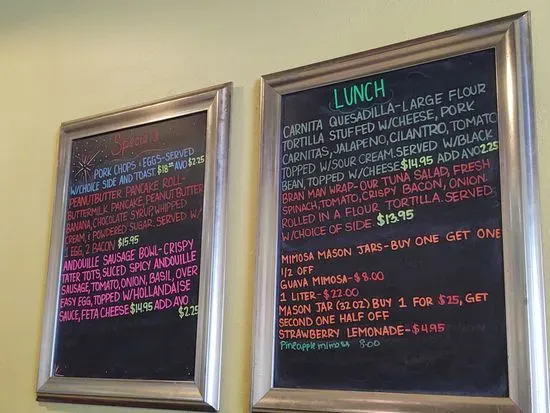 Specials
PORK CHOPS & EGGS-SERVED
W/CHOICE SIDE AND TOAST $18 AVO $2.25
PEANUTBUTTER PANCAKE ROLL-
BUTTERMILK PANCAKE, PEANUTBUTTER
BANANA, CHOCOLATE SYRUP, WHIPPED
CREAM, & POWDERED SUGAR. SERVED W/
1 EGG, 2 BACON $15.95
ANDOUILLE SAUSAGE BOWL-CRISPY
TATER TOTS, SLICED SPICY ANDOUILLE
SAUSAGE, TOMATO, ONION, BASIL, OVER
EASY EGG, TOPPED W/HOLLANDAISE
SAUCE, FETA CHEESE $14.95 ADD AVO
$2.25
LUNCH
CARNITA QUESADILLA-LARGE FLOUR
TORTILLA STUFFED W/CHEESE, PORK
CARNITAS, JALAPENO, CILANTRO, TOMATO
TOPPED W/SOUR CREAM. SERVED W/BLACK
BEAN, TOPPED W/CHEESE $14.95 ADD AVO 2.25
BRAN MAN WRAP-OUR TUNA SALAD, FRESH
SPINACH, TOMATO, CRISPY BACON, ONION.
ROLLED IN A FLOUR TORTILLA. SERVED
W/CHOICE OF SIDE. $13.95
MIMOSA MASON JARS-BUY ONE GET ONE
1/2 OFF
GUAVA MIMOSA-$8.00
1 LITER-$22.00
MASON JAR (32 OZ) BUY 1 FOR $25, GET
SECOND ONE HALF OFF
STRAWBERRY LEMONADE-$4.95
Pineapple mimosa 8.00